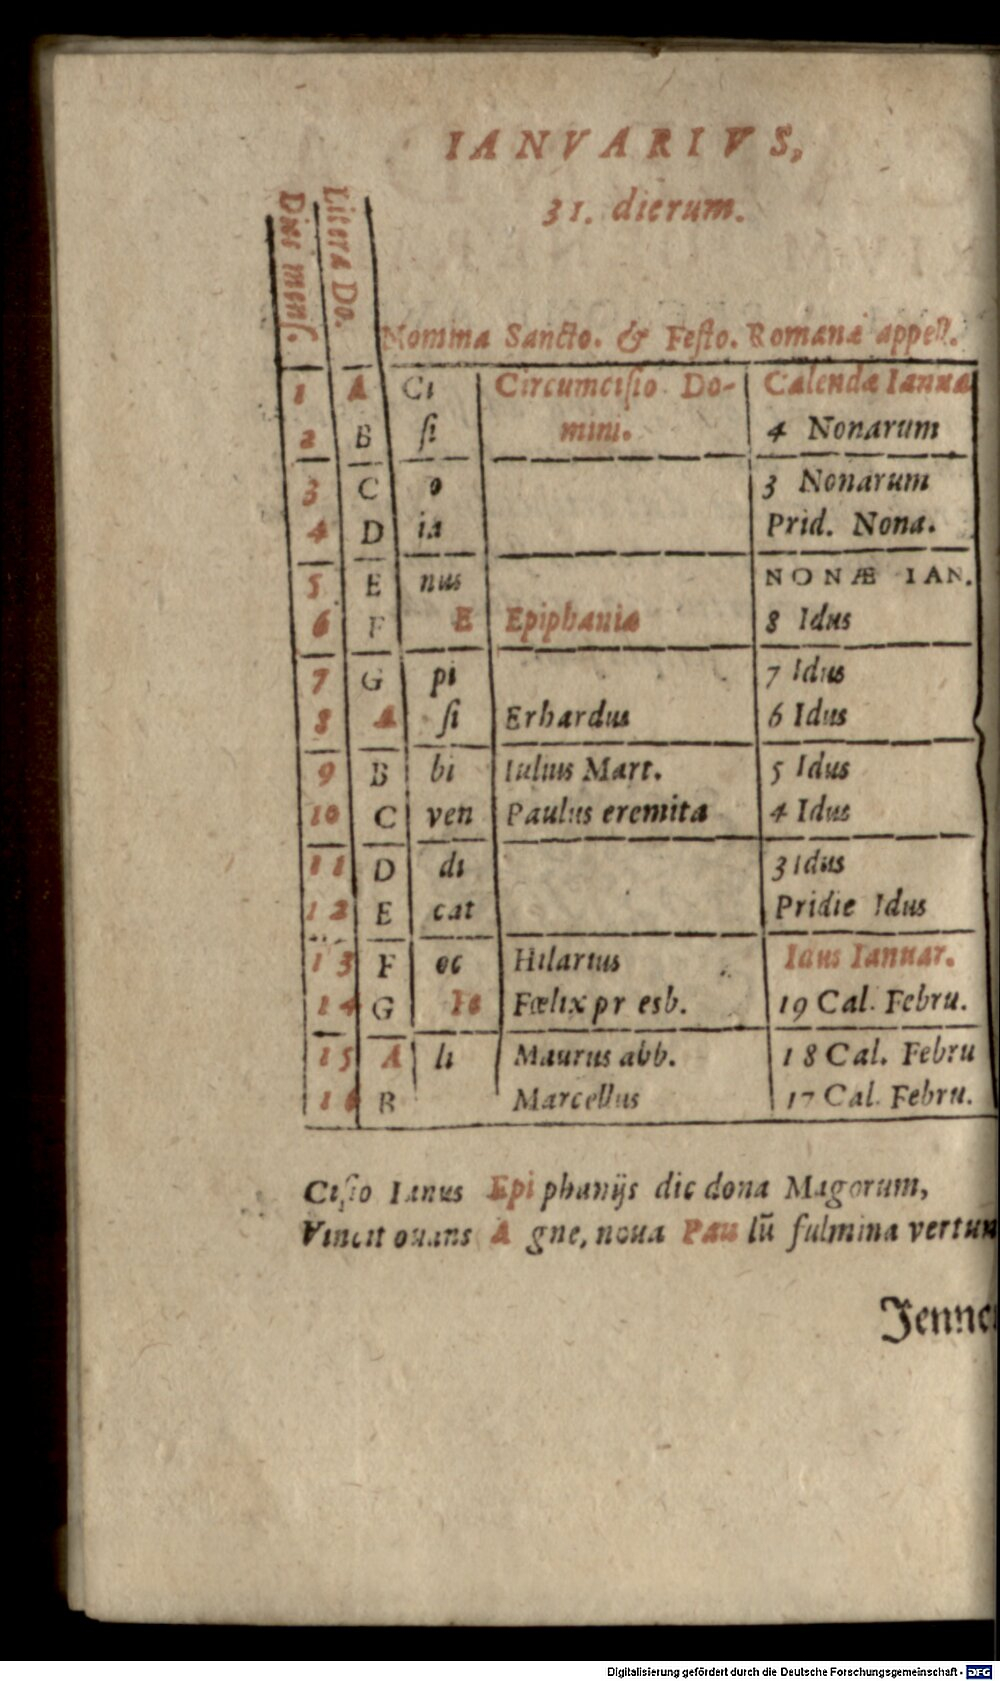 IANVARIVS,
31. dierum.
Dies mens.
Litera Do.
Nomina Sancto. & Festo. Romanæ appell.
1 A Ci Circumcisio Do- Calendæ Ianua
2 B si mini. 4 Nonarum
3 C o 3 Nonarum
4 D ia Prid. Nona.
5 E nus NONÆ IAN.
6 F E Epiphaniæ 8 Idus
7 G pi 7 Idus
8 A si Erhardus 6 Idus
9 B bi Iulius Mart. 5 Idus
10 C ven Paulus eremita 4 Idus
11 D di 3 Idus
12 E cat Pridie Idus
13 F oc Hilarius Idus Ianuar.
14 G Fe Fœlix pr esb. 19 Cal. Febru.
15 A li Maurus abb. 18 Cal. Febru
16 B Marcellus 17 Cal. Febru.
Cisio Ianus Epi phanijs dic dona Magorum,
Vincit ouans A gne, noua Pau lū fulmina vertun
Jenne
Digitalisierung gefördert durch die Deutsche Forschungsgemeinschaft - DFG